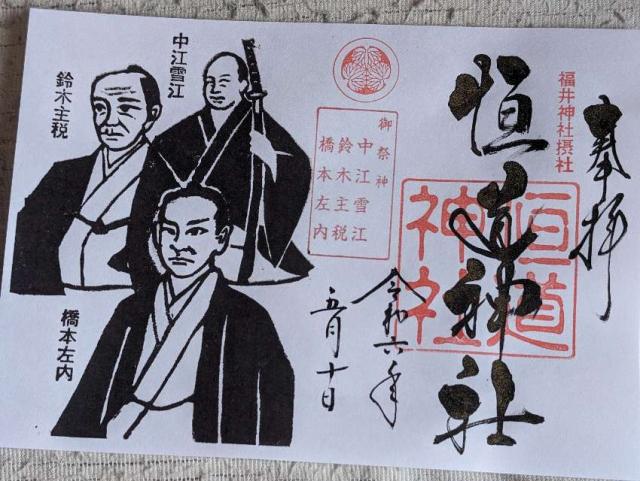 奉拝
福井神社摂社
恒道神社
恒道
神社
御祭神
中江雪江
鈴木主税
橋本左内
令和六年
五月十日
中江雪江
鈴木主税
橋本左内